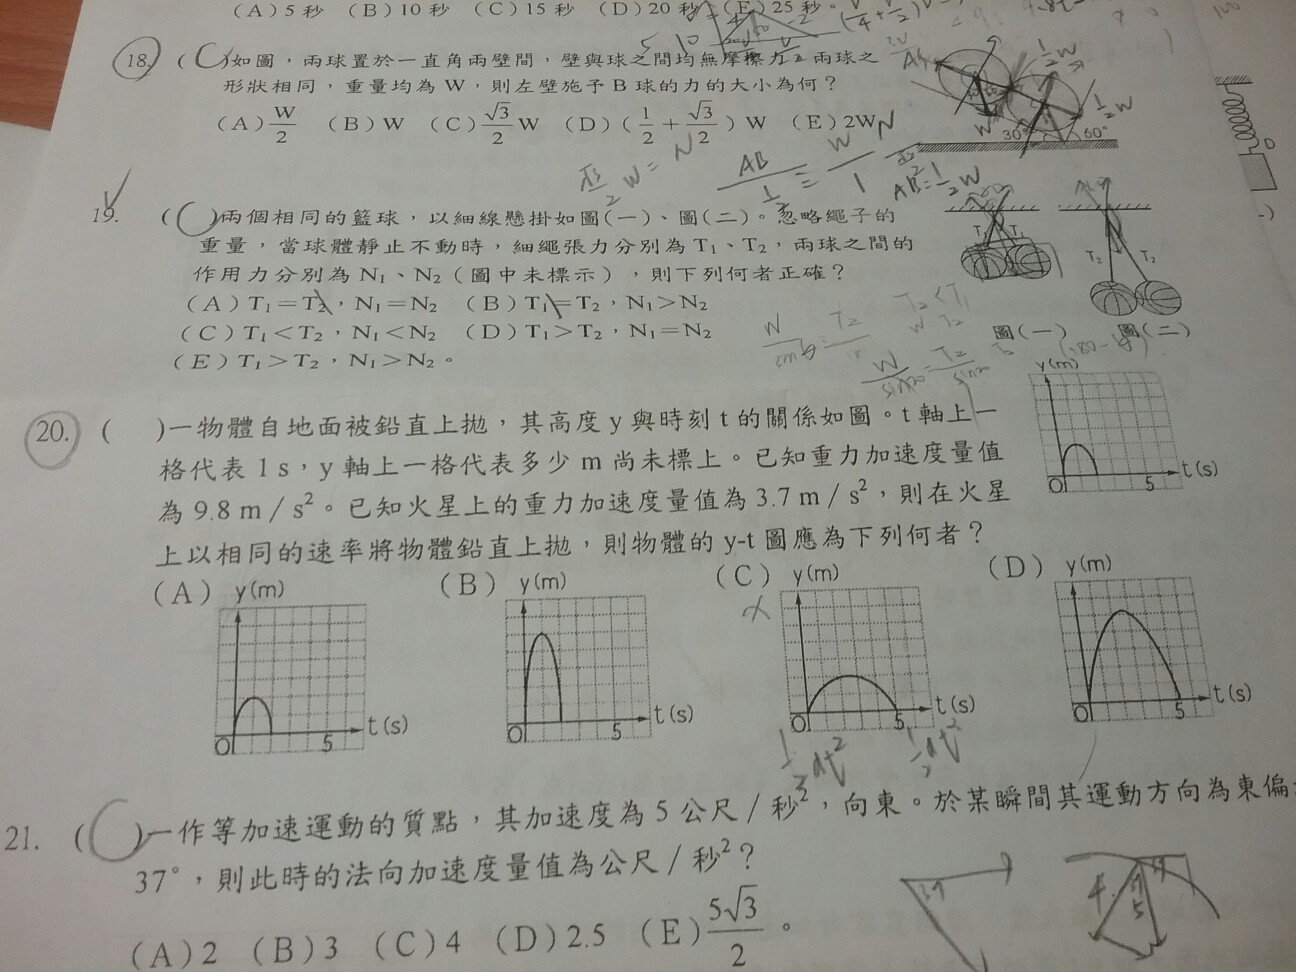 (A)5秒 (B)10秒 (C)15秒 (D)20秒 (E)25秒。
18. ( )如圖,兩球置於一直角兩壁間,壁與球之間均無摩擦力,兩球之
形狀相同,重量均為W,則左壁施予B球的力的大小為何?
(A)W/2 (B)W (C)√3/2 W (D)(1/2+√3/2)W (E)2W
30° 60°
W
1/2 W
1/2 W
√3/2 W = N
AB/(1/2) = W/1
AB=1/2 W
19. ( )兩個相同的籃球,以細線懸掛如圖(一)、圖(二)。忽略繩子的
重量,當球體靜止不動時,細繩張力分別為T₁、T₂,兩球之間的
作用力分別為N₁、N₂(圖中未標示),則下列何者正確?
(A)T₁=T₂,N₁=N₂ (B)T₁=T₂,N₁>N₂
(C)T₁<T₂,N₁<N₂ (D)T₁>T₂,N₁=N₂
(E)T₁>T₂,N₁>N₂。
T₁ T₁
T₂ T₂
圖(一) 圖(二)
20. ( )一物體自地面被鉛直上拋,其高度y與時刻t的關係如圖。t軸上一
格代表1 s,y軸上一格代表多少m尚未標上。已知重力加速度量值
為9.8 m/s²。已知火星上的重力加速度量值為3.7 m/s²,則在火星
上以相同的速率將物體鉛直上拋,則物體的y-t圖應為下列何者?
y(m)
O 5 t(s)
(A) y(m)
O 5 t(s)
(B) y(m)
O 5 t(s)
(C) y(m)
O 5 t(s)
(D) y(m)
O 5 t(s)
21. ( )一作等加速運動的質點,其加速度為5公尺/秒²,向東。於某瞬間其運動方向為東偏
37°,則此時的法向加速度量值為公尺/秒²?
(A)2 (B)3 (C)4 (D)2.5 (E)5√3/2。
37